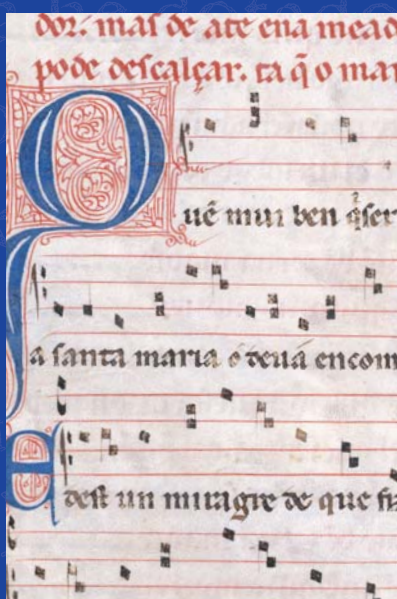 dor. mas de ate ena mead
pode descalçar. ca q̄ o mar
Quē mui ben qͥser
a santa maria o deuá encom
E dest un miragre de que fi